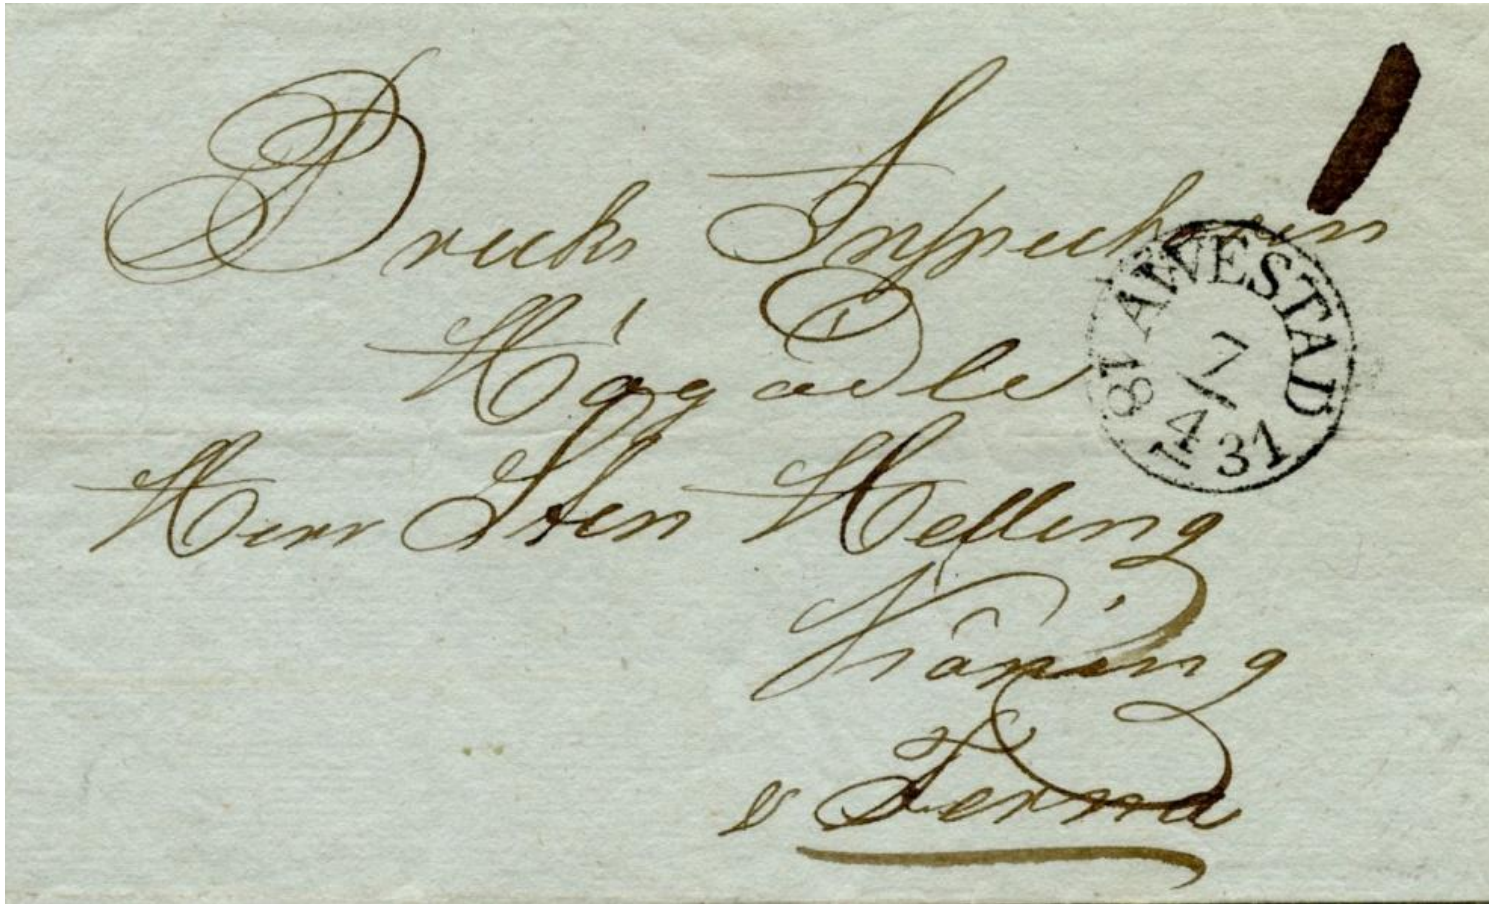 Brucks Inspectoren
Högädle
Herr Sten Helling
Kiöping
Ferna
AWESTAD
7
4
1831